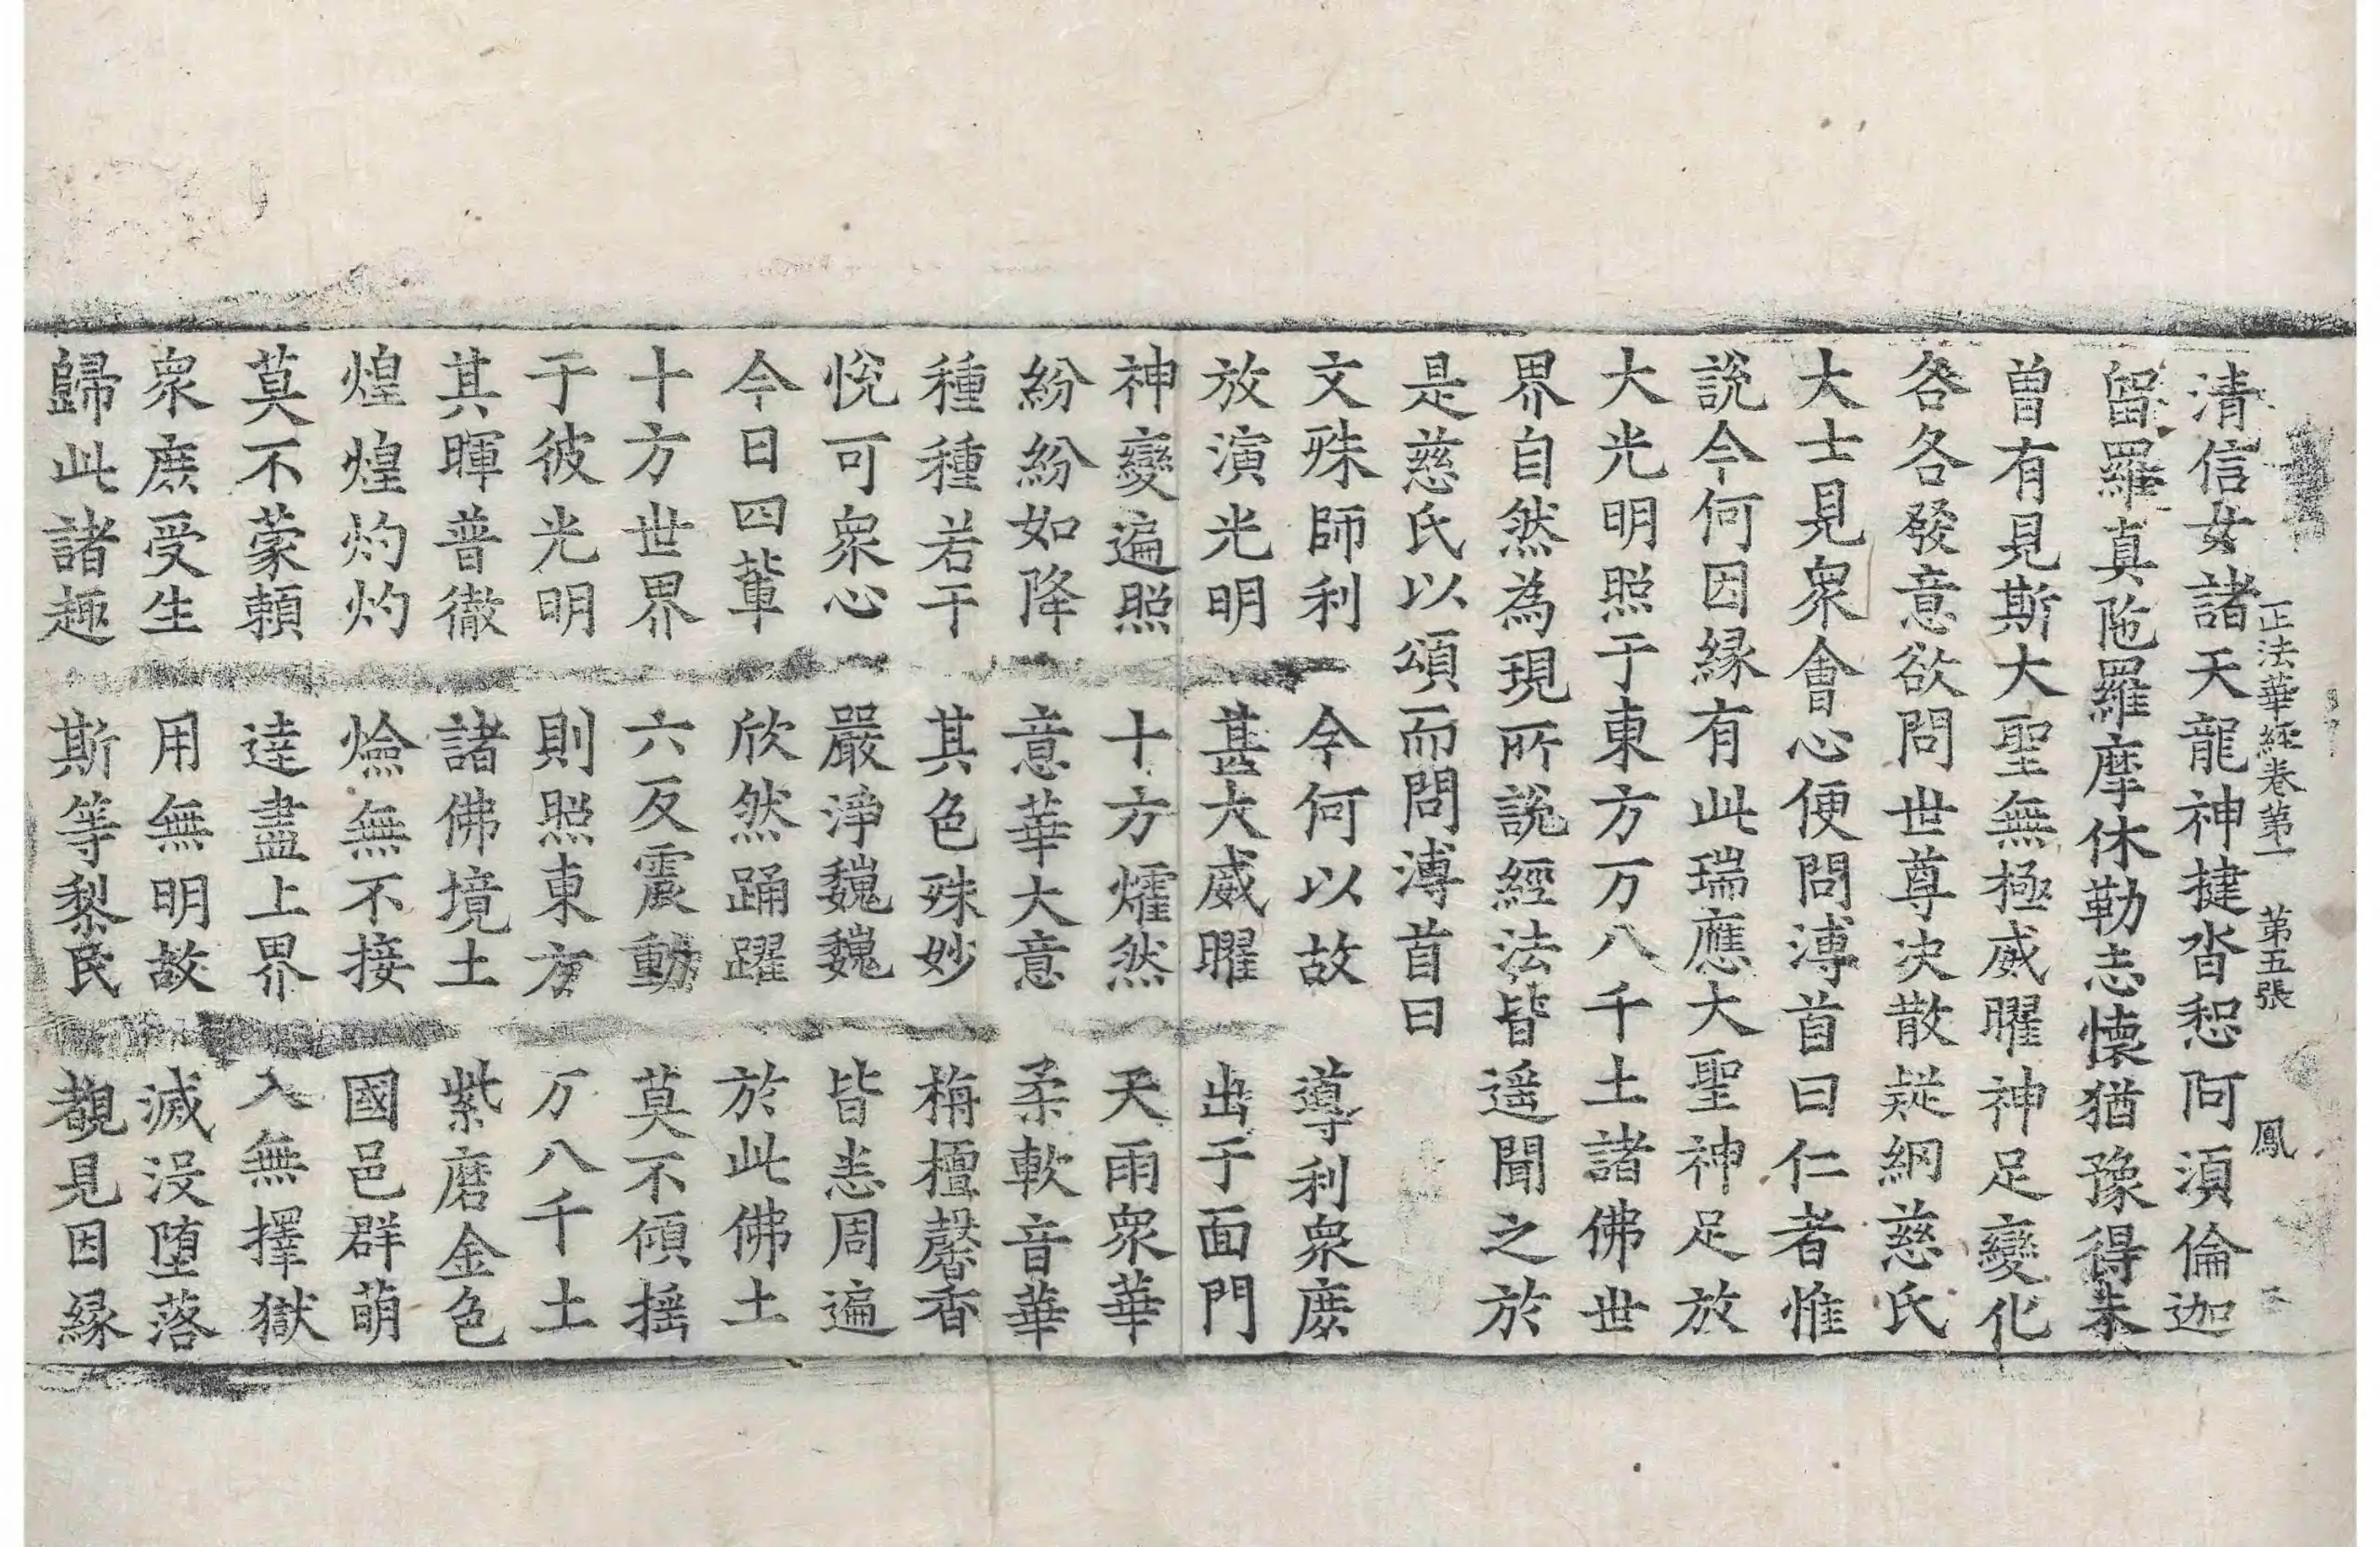 正法華經卷第一　第五張　鳳
清信女諸天龍神揵沓惒阿須倫迦
留羅真陁羅摩休勒志懷猶豫得未
曽有見斯大聖無極威曜神足變化
各各發意欲問世尊决散疑網慈氏
大士見衆會心便問溥首曰仁者惟
說今何因緣有此瑞應大聖神足放
大光明照于東方万八千土諸佛世
界自然為現所說經法皆遥聞之於
是慈氏以頌而問溥首曰
文殊師利　今何以故　導利衆庻
放演光明　甚大威曜　出于面門
神變遍照　十方燿然　天雨衆華
紛紛如降　意華大意　柔軟音華
種種若干　其色殊妙　栴檀馨香
悅可衆心　嚴淨魏魏　皆悉周遍
今日四輩　欣然踊躍　於此佛土
十方世界　六反震動　莫不傾摇
于彼光明　則照東方　万八千土
其暉普徹　諸佛境土　紫磨金色
煌煌灼灼　燄無不接　國邑群萌
莫不蒙頼　達盡上界　入無擇獄
衆庻受生　用無明故　滅没堕落
歸此諸趣　斯等黎民　覩見因緣